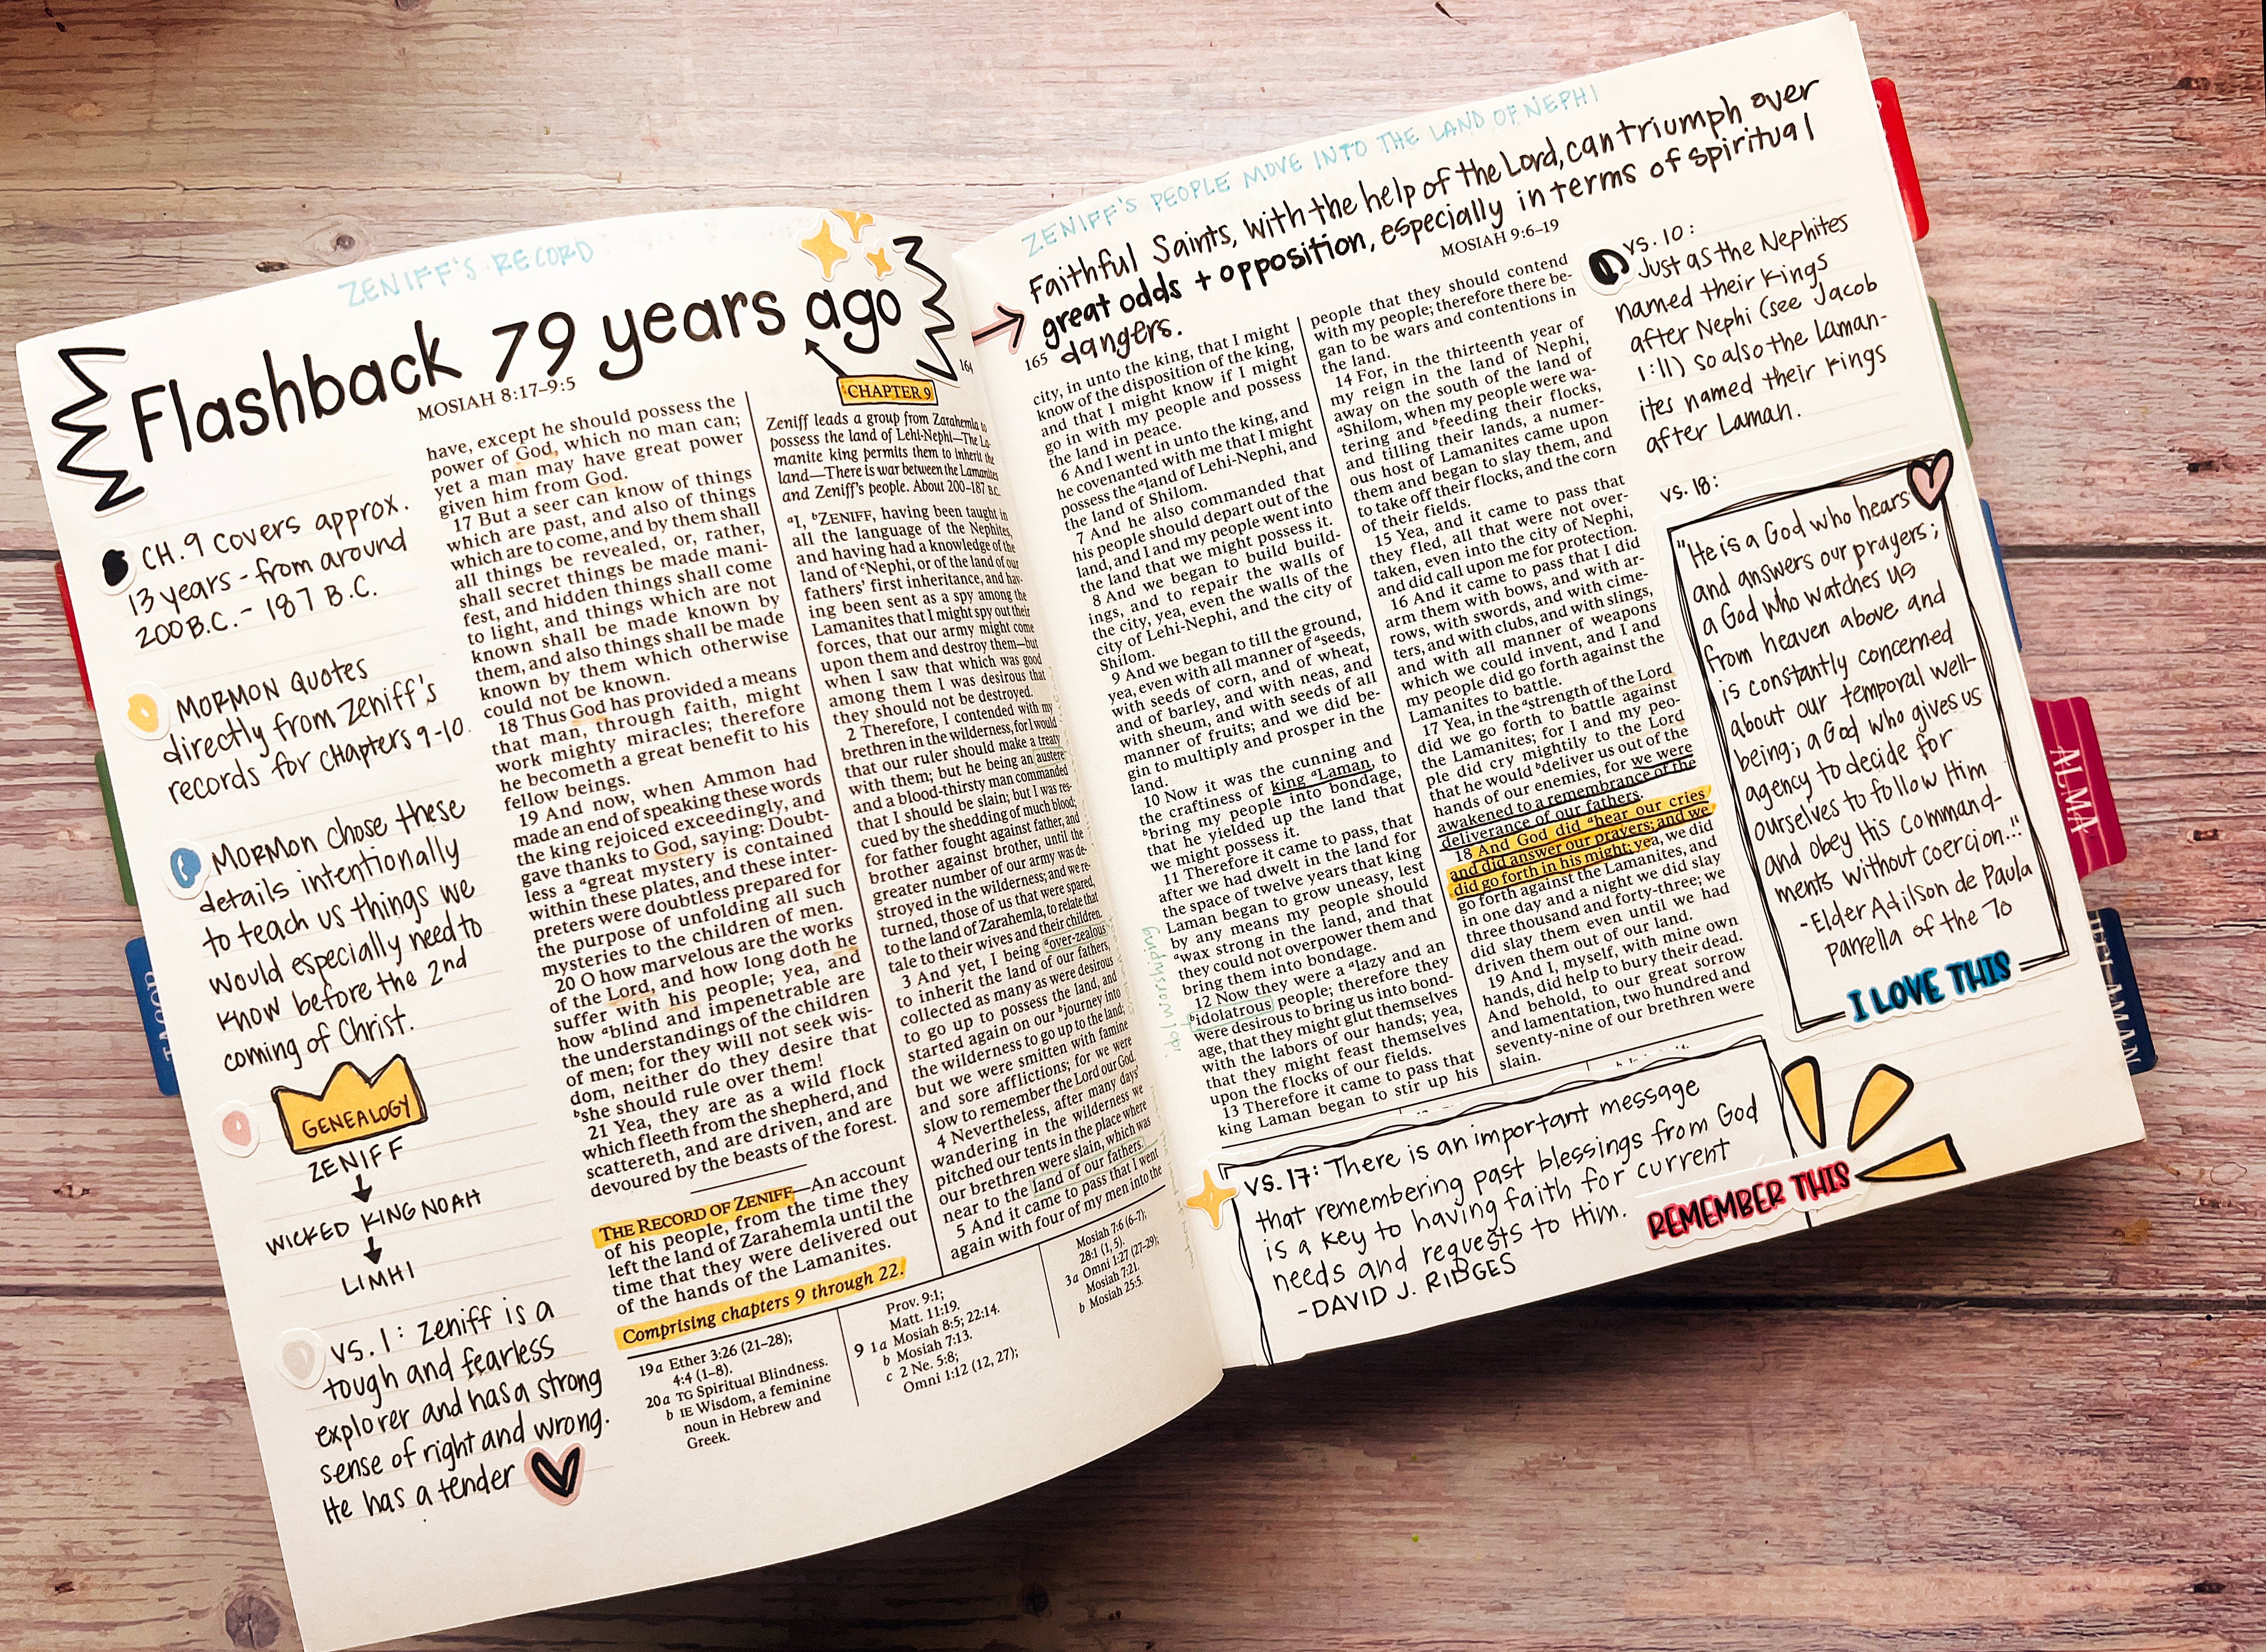 ZENIFF'S RECORD
Flashback 79 years ago
164
MOSIAH 8:17–9:5
CH. 9 covers approx.
13 years - from around
200 B.C. - 187 B.C.
MORMON QUOTES
directly from Zeniff's
records for chapters 9-10.
MORMON chose these
details intentionally
to teach us things we
would especially need to
know before the 2nd
coming of Christ.
GENEALOGY
ZENIFF
WICKED KING NOAH
LIMHI
vs. 1: Zeniff is a
tough and fearless
explorer and has a strong
sense of right and wrong.
He has a tender
have, except he should possess the
power of God, which no man can;
yet a man may have great power
given him from God.
17 But a seer can know of things
which are past, and also of things
which are to come, and by them shall
all things be revealed, or, rather,
shall secret things be made mani-
fest, and hidden things shall come
to light, and things which are not
known shall be made known by
them, and also things shall be made
known by them which otherwise
could not be known.
18 Thus God has provided a means
that man, through faith, might
work mighty miracles; therefore
he becometh a great benefit to his
fellow beings.
19 And now, when Ammon had
made an end of speaking these words
the king rejoiced exceedingly, and
gave thanks to God, saying: Doubt-
less a ᵃgreat mystery is contained
within these plates, and these inter-
preters were doubtless prepared for
the purpose of unfolding all such
mysteries to the children of men.
20 O how marvelous are the works
of the Lord, and how long doth he
suffer with his people; yea, and
how ᵃblind and impenetrable are
the understandings of the children
of men; for they will not seek wis-
dom, neither do they desire that
ᵇshe should rule over them!
21 Yea, they are as a wild flock
which fleeth from the shepherd, and
scattereth, and are driven, and are
devoured by the beasts of the forest.
THE RECORD OF ZENIFF—An account
of his people, from the time they
left the land of Zarahemla until the
time that they were delivered out
of the hands of the Lamanites.
Comprising chapters 9 through 22.
CHAPTER 9
Zeniff leads a group from Zarahemla to
possess the land of Lehi-Nephi—The La-
manite king permits them to inherit the
land—There is war between the Lamanites
and Zeniff's people. About 200–187 B.C.
ᵃI, ᵇZENIFF, having been taught in
all the language of the Nephites,
and having had a knowledge of the
land of ᶜNephi, or of the land of our
fathers' first inheritance, and hav-
ing been sent as a spy among the
Lamanites that I might spy out their
forces, that our army might come
upon them and destroy them—but
when I saw that which was good
among them I was desirous that
they should not be destroyed.
2 Therefore, I contended with my
brethren in the wilderness, for I would
that our ruler should make a treaty
with them; but he being an austere
and a blood-thirsty man commanded
that I should be slain; but I was res-
cued by the shedding of much blood;
for father fought against father, and
brother against brother, until the
greater number of our army was de-
stroyed in the wilderness; and we re-
turned, those of us that were spared,
to the land of Zarahemla, to relate that
tale to their wives and their children.
3 And yet, I being ᵃover-zealous
to inherit the land of our fathers,
collected as many as were desirous
to go up to possess the land, and
started again on our ᵇjourney into
the wilderness to go up to the land;
but we were smitten with famine
and sore afflictions; for we were
slow to remember the Lord our God.
4 Nevertheless, after many days'
wandering in the wilderness we
pitched our tents in the place where
our brethren were slain, which was
near to the land of our fathers.
5 And it came to pass that I went
again with four of my men into the
19a Ether 3:26 (21–28);
4:4 (1–8).
20a TG Spiritual Blindness.
b IE Wisdom, a feminine
noun in Hebrew and
Greek.
Prov. 9:1;
Matt. 11:19.
9 1a Mosiah 8:5; 22:14.
b Mosiah 7:13.
c 2 Ne. 5:8;
Omni 1:12 (12, 27);
Mosiah 7:6 (6–7);
28:1 (1, 5).
3a Omni 1:27 (27–29);
Mosiah 7:21.
b Mosiah 25:5.
ZENIFF'S PEOPLE MOVE INTO THE LAND OF NEPHI
Faithful Saints, with the help of the Lord, can triumph over
great odds + opposition, especially in terms of spiritual
dangers.
165
MOSIAH 9:6–19
city, in unto the king, that I might
know of the disposition of the king,
and that I might know if I might
go in with my people and possess
the land in peace.
6 And I went in unto the king, and
he covenanted with me that I might
possess the ᵃland of Lehi-Nephi, and
the land of Shilom.
7 And he also commanded that
his people should depart out of the
land, and I and my people went into
the land that we might possess it.
8 And we began to build build-
ings, and to repair the walls of
the city, yea, even the walls of the
city of Lehi-Nephi, and the city of
Shilom.
9 And we began to till the ground,
yea, even with all manner of ᵃseeds,
with seeds of corn, and of wheat,
and of barley, and with neas, and
with sheum, and with seeds of all
manner of fruits; and we did be-
gin to multiply and prosper in the
land.
10 Now it was the cunning and
the craftiness of king ᵃLaman, to
ᵇbring my people into bondage,
that he yielded up the land that
we might possess it.
11 Therefore it came to pass, that
after we had dwelt in the land for
the space of twelve years that king
Laman began to grow uneasy, lest
by any means my people should
ᵃwax strong in the land, and that
they could not overpower them and
bring them into bondage.
12 Now they were a ᵃlazy and an
ᵇidolatrous people; therefore they
were desirous to bring us into bond-
age, that they might glut themselves
with the labors of our hands; yea,
that they might feast themselves
upon the flocks of our fields.
13 Therefore it came to pass that
king Laman began to stir up his
idol worshping
people that they should contend
with my people; therefore there be-
gan to be wars and contentions in
the land.
14 For, in the thirteenth year of
my reign in the land of Nephi,
away on the south of the land of
ᵃShilom, when my people were wa-
tering and ᵇfeeding their flocks,
and tilling their lands, a numer-
ous host of Lamanites came upon
them and began to slay them, and
to take off their flocks, and the corn
of their fields.
15 Yea, and it came to pass that
they fled, all that were not over-
taken, even into the city of Nephi,
and did call upon me for protection.
16 And it came to pass that I did
arm them with bows, and with ar-
rows, with swords, and with cime-
ters, and with clubs, and with slings,
and with all manner of weapons
which we could invent, and I and
my people did go forth against the
Lamanites to battle.
17 Yea, in the ᵃstrength of the Lord
did we go forth to battle against
the Lamanites; for I and my peo-
ple did cry mightily to the Lord
that he would ᵇdeliver us out of the
hands of our enemies, for we were
awakened to a remembrance of the
deliverance of our fathers.
18 And God did ᵃhear our cries
and did answer our prayers; and we
did go forth in his might; yea, we did
go forth against the Lamanites, and
in one day and a night we did slay
three thousand and forty-three; we
did slay them even until we had
driven them out of our land.
19 And I, myself, with mine own
hands, did help to bury their dead.
And behold, to our great sorrow
and lamentation, two hundred and
seventy-nine of our brethren were
slain.
vs. 10:
Just as the Nephites
named their kings
after Nephi (see Jacob
1:11) so also the Laman-
ites named their kings
after Laman.
vs. 18:
"He is a God who hears
and answers our prayers;
a God who watches us
from heaven above and
is constantly concerned
about our temporal well-
being; a God who gives us
agency to decide for
ourselves to follow Him
and obey His command-
ments without coercion..."
-Elder Adilson de Paula
Parrella of the 70
I LOVE THIS
vs. 17: There is an important message
that remembering past blessings from God
is a key to having faith for current
needs and requests to Him.
-DAVID J. RIDGES
REMEMBER THIS
ALMA